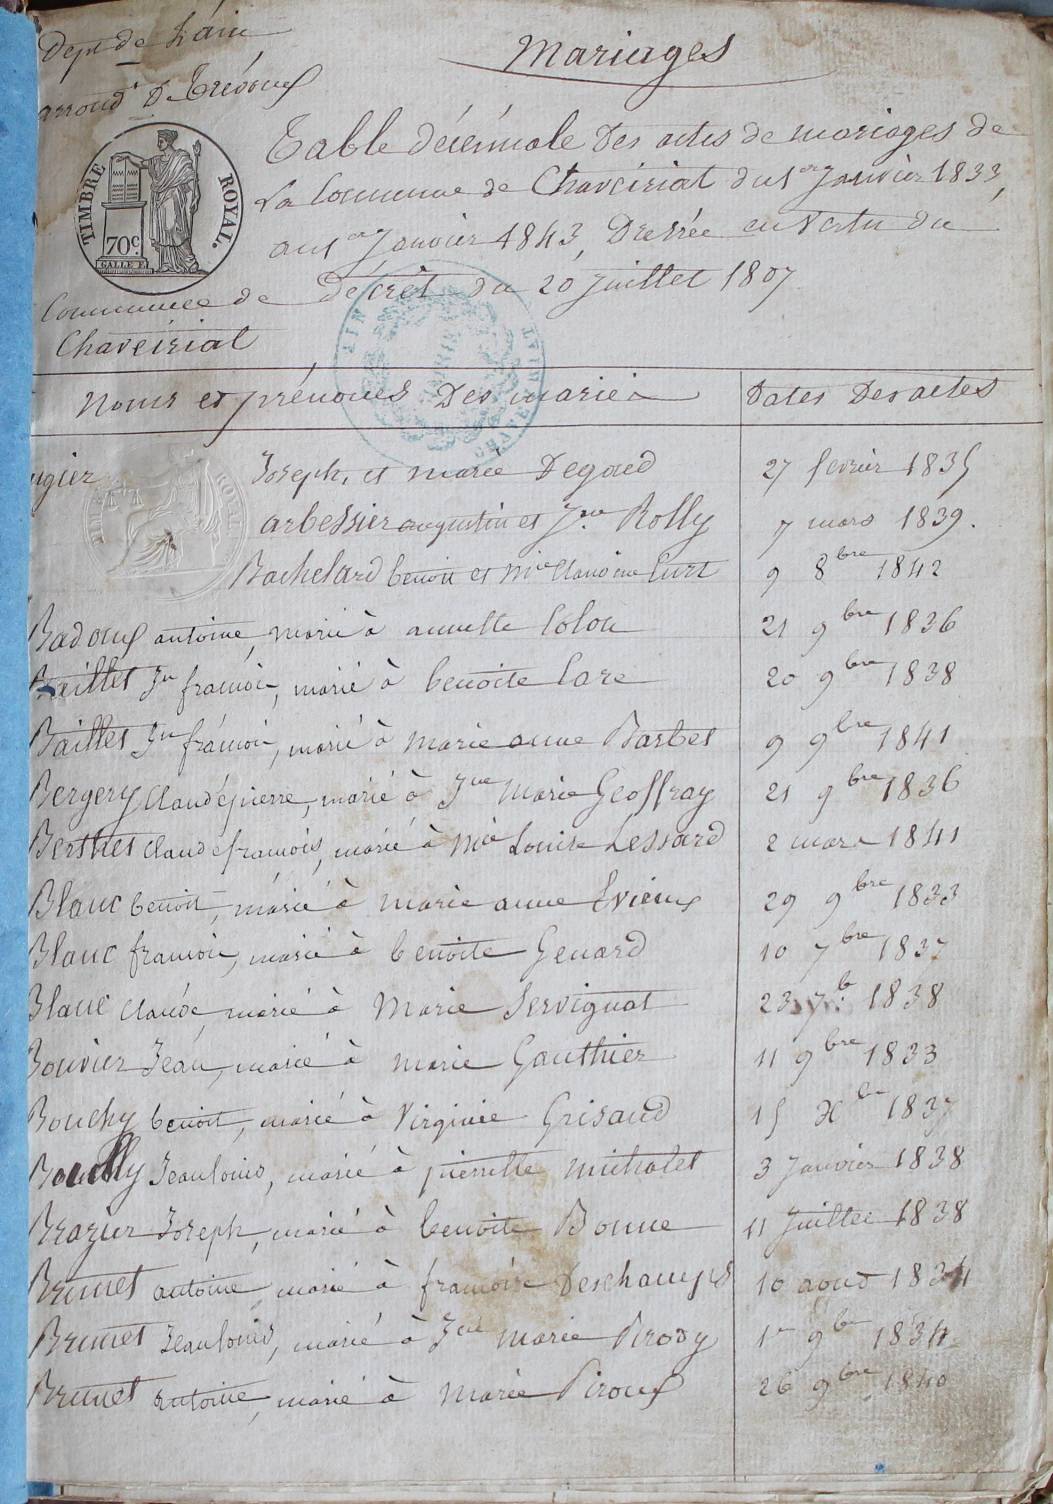 Dept de L'ain
Mariages
arrondt De Trévoux
Table décénnale Des actes de mariages de
La Commune de Chaveiriat du 1er Janvier 1833,
au 1er Janvier 1843, Dressée en vertu du
Décrèt du 20 Juillet 1807
TIMBRE ROYAL.
70 c.
Commune de
Chaveiriat
Noms et prénoms Des mariés
Dates Des actes
ugier Joseph, et marie Degoud 27 fevrier 1835
arbessier augustin et Jne Rolly 7 mars 1839.
Bachelard benoit et Mie Claudine Curt 9 8bre 1842
Badoux antoine, marié à annette Colon 21 9bre 1836
Baillet Jn françois, marié à benoite Care 20 9bre 1838
Baillet Jn françois, marié à Marie anne Barbet 9 9bre 1841
Bergery Claude pierre, marié à Jne Marie Geoffray 21 9bre 1836
Berthet Claude françois, marié à Mie Louise Lessard 2 mars 1841
Blanc benoit, marié à marie anne Evieux 29 9bre 1833
Blanc françois, marié à benoite Genard 10 7bre 1837
Blanc Claude, marié à Marie Servignat 23 7b. 1838
Bouvier Jean, marié à marie Gauthier 11 9bre 1833
Bouchy benoit, marié à Virginie Grisaud 15 Xbre 1837
Jean louis, marié à pierrette michalet 3 Janvier 1838
Brazier Joseph, marié à benoite Bonne 11 Juillet 1838
Brunet antoine, marié à françoise Deschamps 10 aout 1834
Brunet Jean louis, marié à Jne Marie Pirody 1er 9bre 1834
Brunet antoine, marié à Marie Piroux 26 9bre 1840